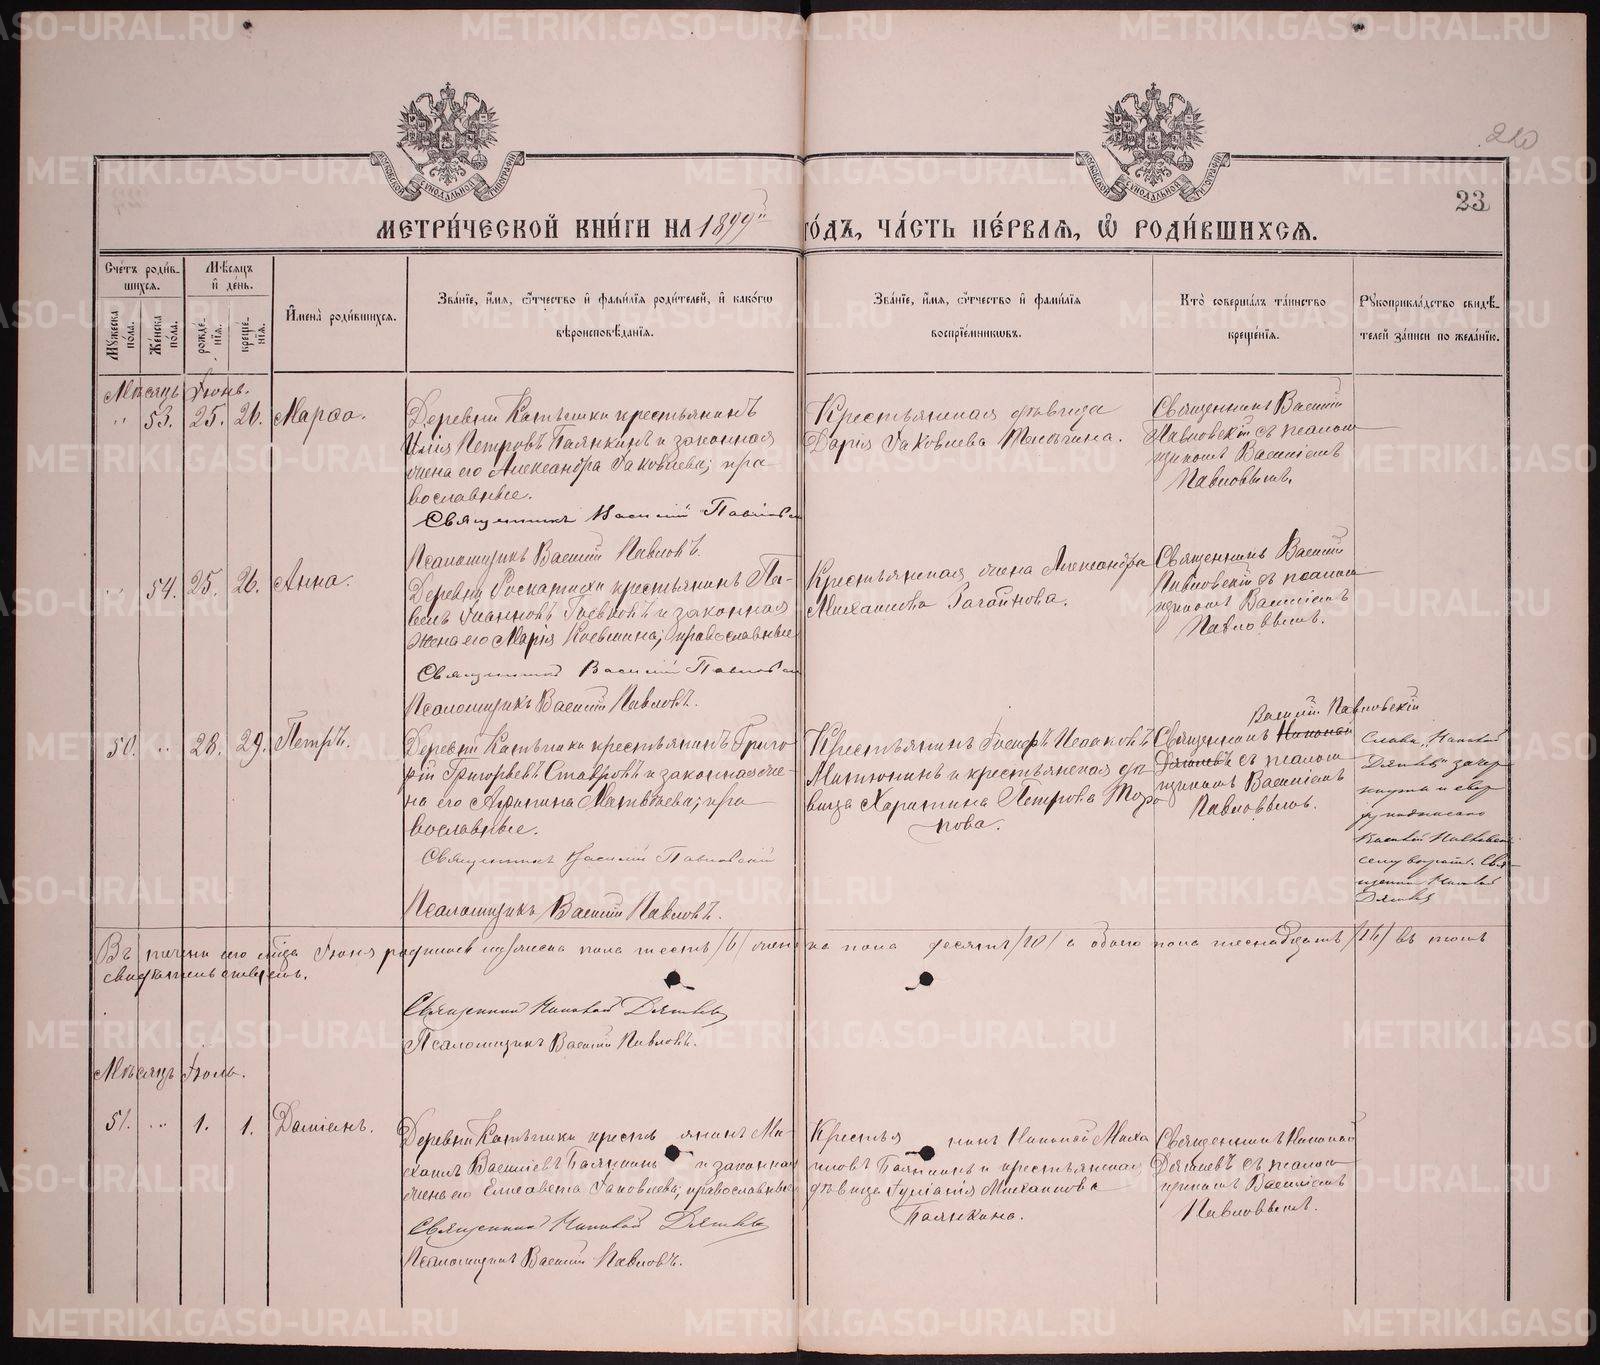 220
23
МЕТРИ́ЧЕСКОЙ КНИ́ГИ НА 1899й ГО́ДЪ, ЧА́СТЬ ПЕ́РВАЯ, Ѡ РОДИ́ВШИХСЯ.
Сче́тъ роди́в-
шихся.
Мꙋ́жеска по́ла.
Же́нска по́ла.
Мѣ́сяцъ
и де́нь.
рожде́-
нїя.
креще́-
нїя.
И҆мена̀ роди́вшихся.
Зва́нїе, и҆́мя, ѻ҆́тчество и҆ фами́лїя роди́телей, и҆ како́гѡ
вѣроисповѣ́данїя.
Зва́нїе, и҆́мя, ѻ҆́тчество и҆ фами́лїя
воспрїе́мниковъ.
Кто̀ соверша́лъ та́инство
креще́нїя.
Рꙋкоприкла́дство свидѣ́-
телей за́писи по жела́нїю.
Мѣсяцъ Іюнь.
" 53. 25. 26. Марѳа.
Деревни Катышки крестьянинъ
Илія Петровъ Балякинъ и законная
жена его Александра Іаковлева; пра-
вославные.
Священникъ Василій Павловскій
Псаломщикъ Василій Павловъ.
Крестьянская дѣвица
Дарія Іаковлева
Священникъ Василій
Павловскій съ псалом-
щикомъ Василіемъ
Павловымъ.
" 54. 25. 26. Анна.
Деревни крестьянинъ Па-
велъ Іоанновъ и законная
жена его Марія православные
Священникъ Василій Павловскій
Псаломщикъ Василій Павловъ.
Крестьянская жена Александра
Михаилова
Священникъ Василій
Павловскій съ псалом-
щикомъ Василіемъ
Павловымъ.
50. " 28. 29. Петръ.
Деревни Катышки крестьянинъ Григо-
рій Григорьевъ Ставровъ и законная же-
на его Матвѣева; пра-
вославные.
Священникъ Василій Павловскій
Псаломщикъ Василій Павловъ.
Крестьянинъ Іосифъ Исааковъ
Митюнинъ и крестьянская дѣ-
вица Харитина Петрова
Василій Павловскій
Священникъ Николай
съ псалом-
щикомъ Василіемъ
Павловымъ.
Слова „Николай
зачер-
кнуто и свер-
ху надписано
Василій Павловскій
сему вѣрить. Свя-
щенникъ Николай
Въ теченіи сего м-ца Іюня родилось мужеска пола шесть /6/ женска пола десять /10/ а обоего пола шестнадцать /16/ въ томъ
свидѣтельствуемъ.
Священникъ Николай
Псаломщикъ Василій Павловъ.
Мѣсяцъ Іюль.
51. " 1. 1. Даміанъ.
Деревни Катышки крестьянинъ Ми-
хаилъ Василіевъ Балякинъ и законная
жена его Елисавета Іаковлева; православные
Священникъ Николай
Псаломщикъ Василій Павловъ.
Крестьянинъ Николай Миха-
иловъ Балякинъ и крестьянская
дѣвица Іуліанія Михаилова
Балякина.
Священникъ Николай
съ псалом-
щикомъ Василіемъ
Павловымъ.